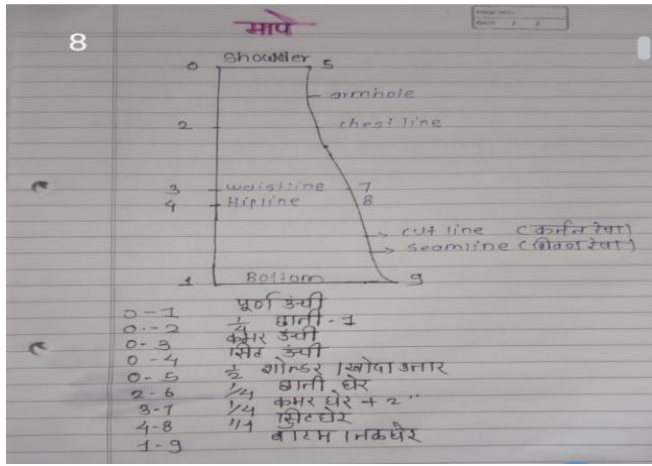 8
मापे
PAGE NO.:
DATE / /
0 Shoulder 5
armhole
2 chest line
3 waistline 7
4 Hipline 8
cut line (कर्तन रेषा)
seamline (शिवण रेषा)
1 Bottom 9
0-1 पूर्ण उंची
0-2 1/4 छाती - 1
0-3 कमर उंची
0-4 सिट उंची
0-5 1/2 शोल्डर । खांदा उतार
2-6 1/4 छाती घेर
3-7 1/4 कमर घेर + 2"
4-8 1/4 सिट घेर
1-9 बाटम